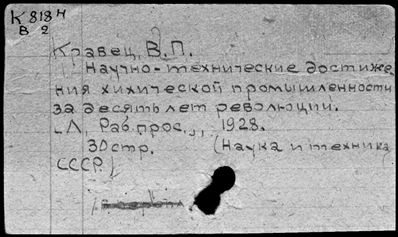 К 818 н
В 2
Кравец, В.П.
Научно-технические достиже
ния химической промышленности
за десять лет революции.
Л, Раб. прос., 1928.
30 стр. (Наука и техника
СССР)